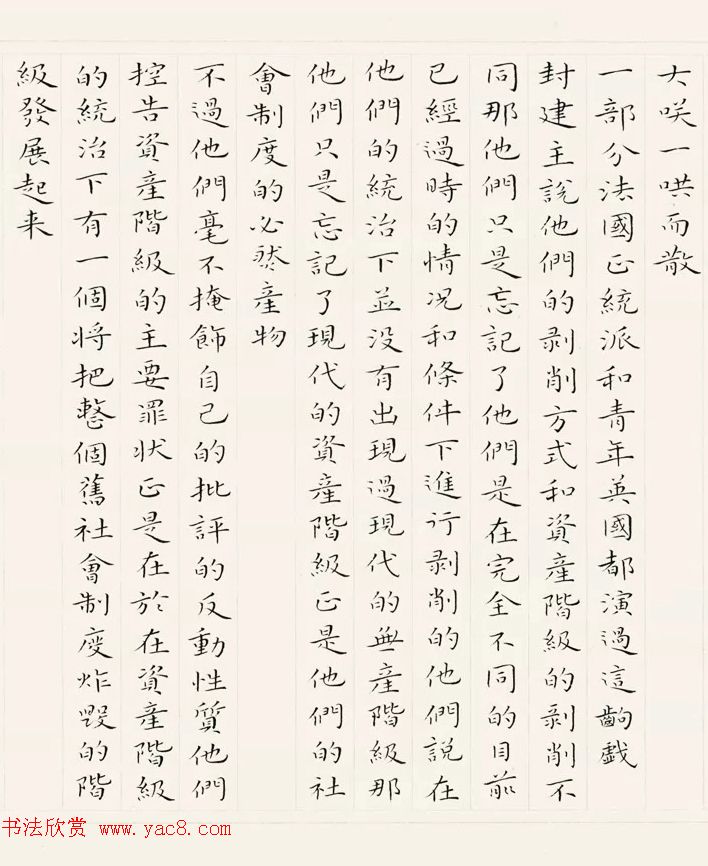 大咲一哄而散
一部分法國正統派和青年英國都演過這齣戲
封建主說他們的剥削方式和資產階級的剥削不
同那他們只是忘記了他們是在完全不同的目前
已經過時的情况和條件下進行剥削的他們說在
他們的統治下並没有出現過現代的無產階級那
他們只是忘記了現代的資產階級正是他們的社
會制度的必然產物
不過他們毫不掩飾自己的批評的反動性質他們
控告資產階級的主要罪状正是在於在資產階級
的統治下有一個将把整個舊社會制度炸毀的階
級發展起来
书法欣赏 www.yac8.com